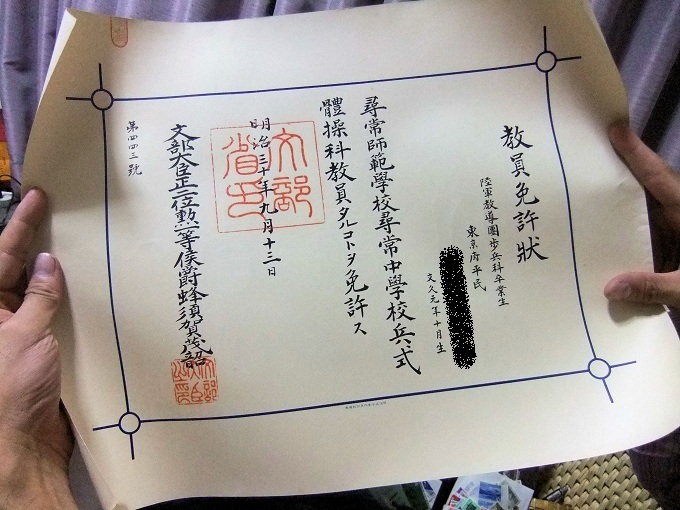 教員免許状
陸軍教導團歩兵科卒業生
東京府平民
文久元年十月生
尋常師範學校尋常中學校兵式
體操科教員タルコトヲ免許ス
明治三十年九月十三日
文部省印
文部大臣正二位勲一等侯爵蜂須賀茂韶
文部大臣之印
第四四三號